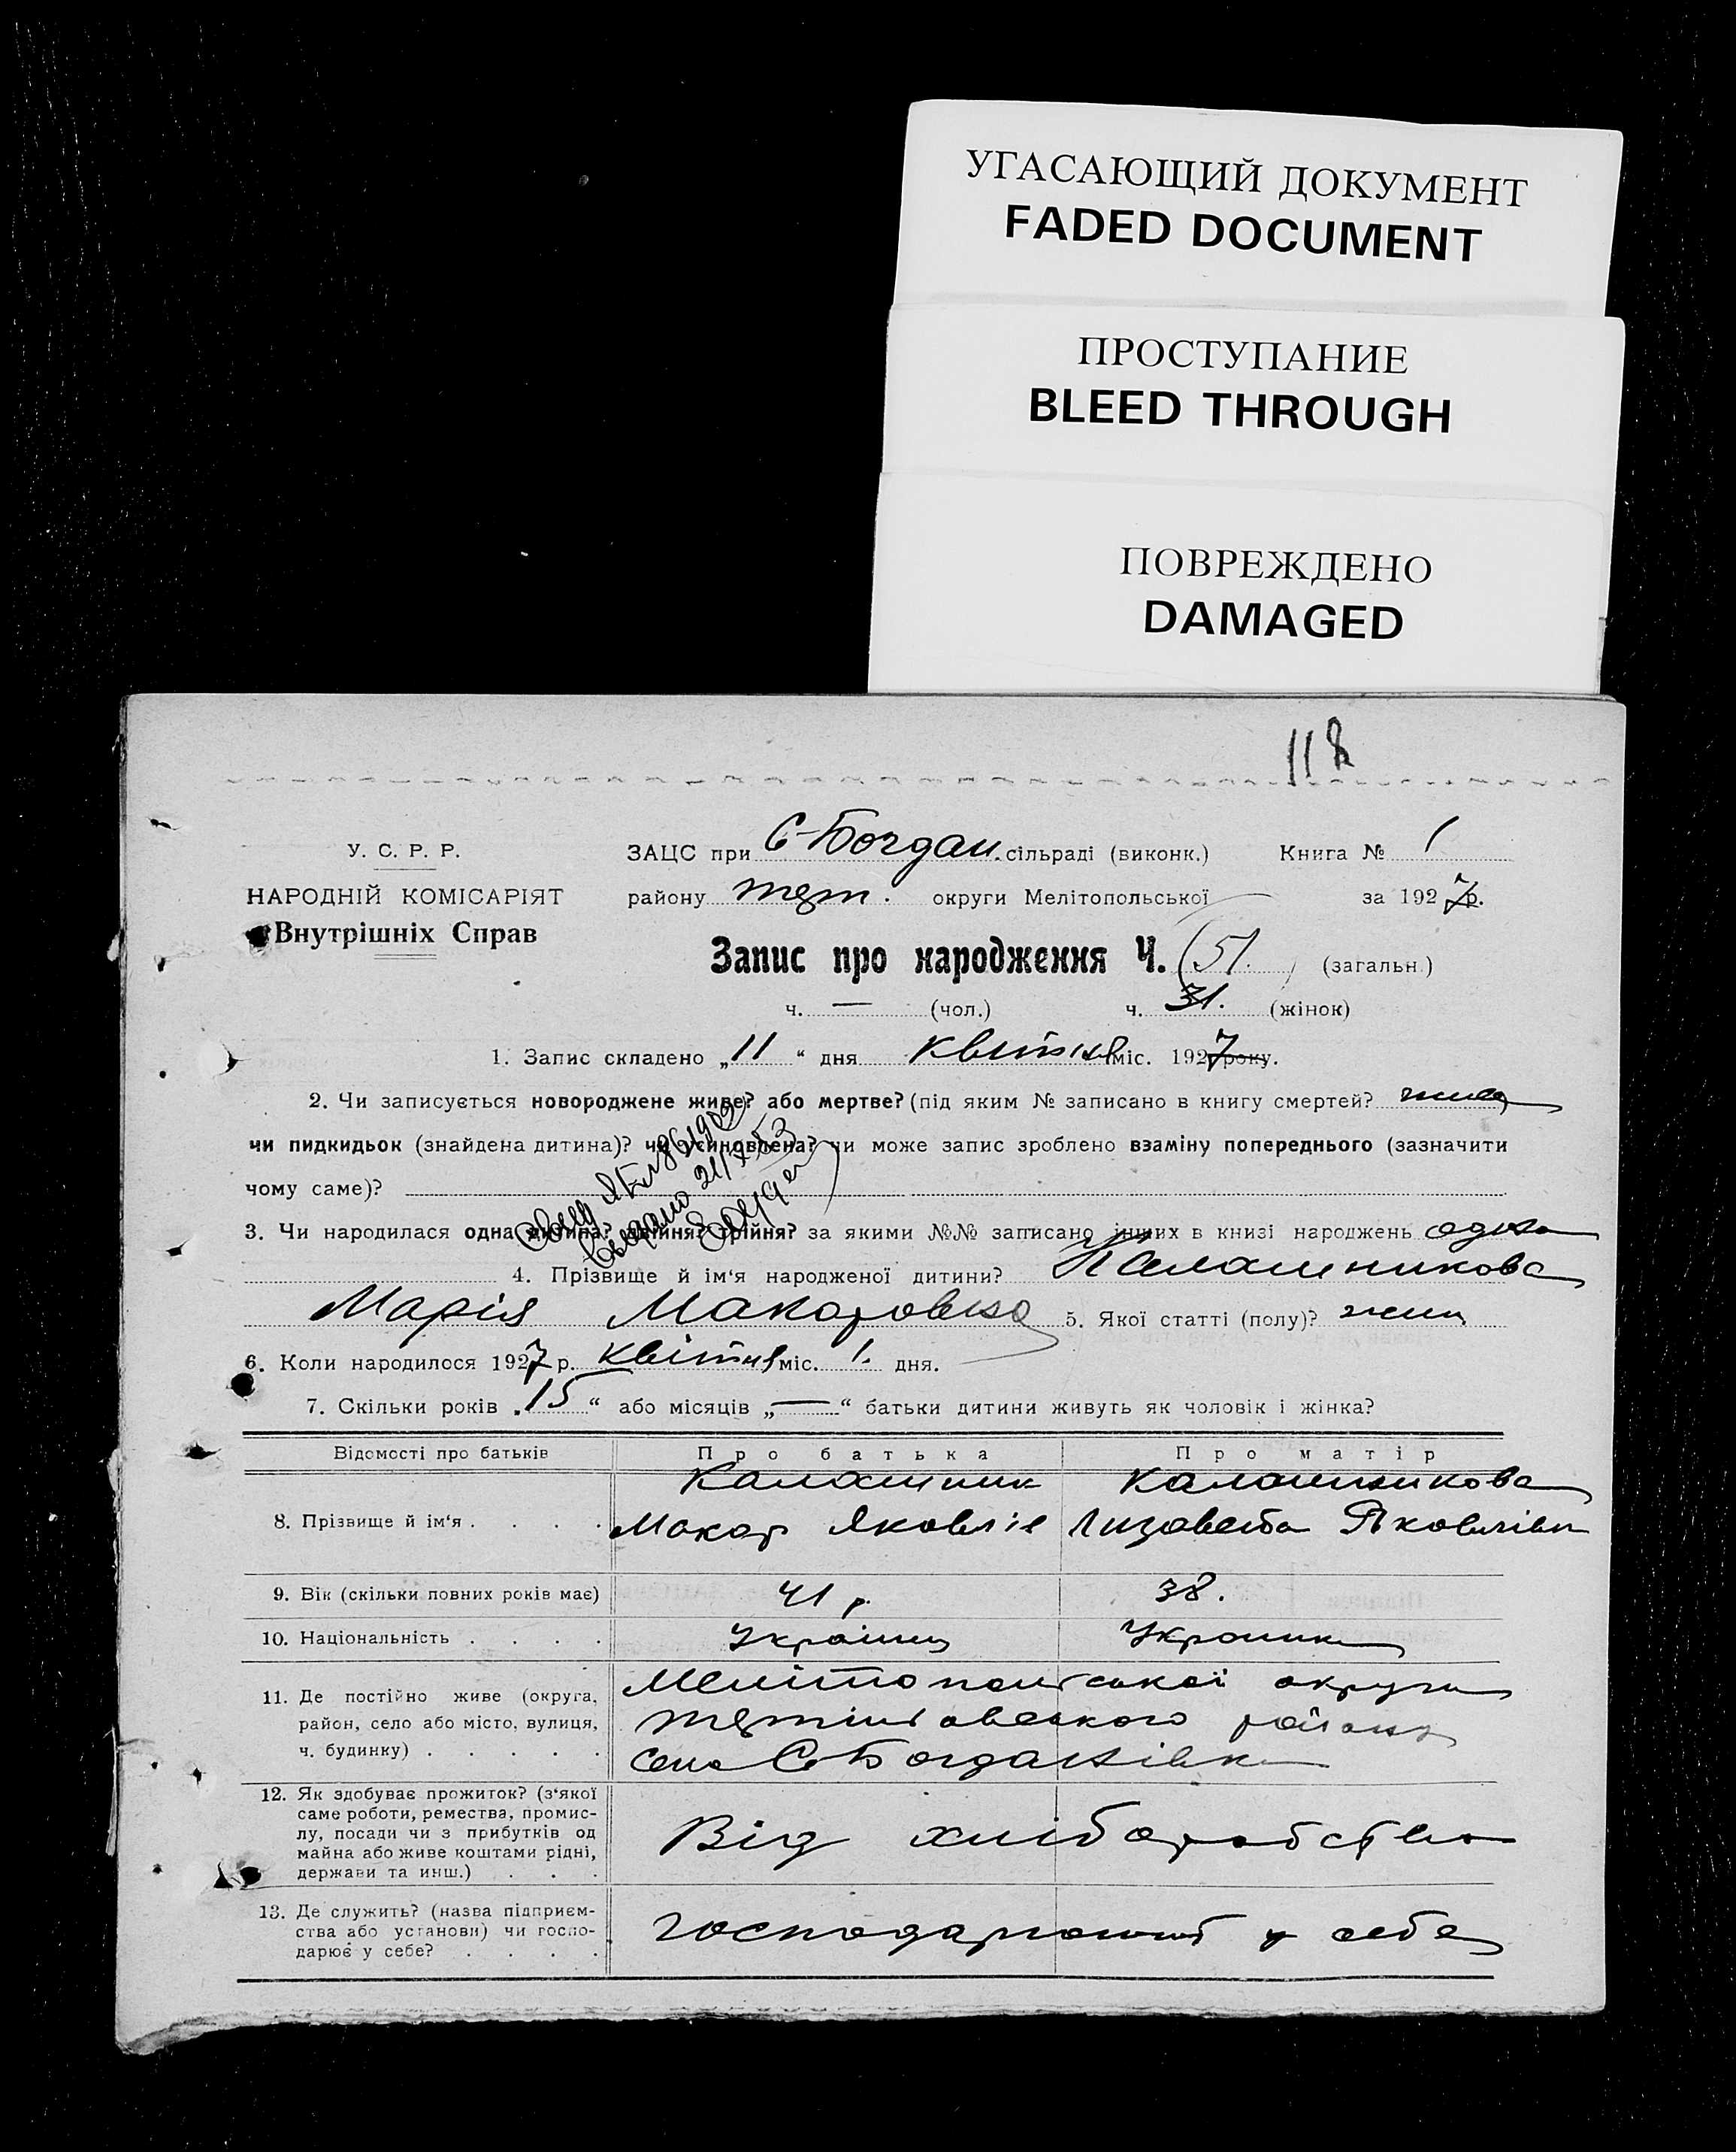 УГАСАЮЩИЙ ДОКУМЕНТ
FADED DOCUMENT
ПРОСТУПАНИЕ
BLEED THROUGH
ПОВРЕЖДЕНО
DAMAGED
118
У. С. Р. Р.
НАРОДНІЙ КОМІСАРІЯТ
Внутрішніх Справ
ЗАЦС при С-Богдан. сільраді (виконк.) Книга № 1
району округи Мелітопольської за 1927 р.
Запис про народження Ч. 51. (загальн.)
ч. — (чол.) ч. 31. (жінок)
1. Запис складено „11“ дня квітня міс. 1927 року.
2. Чи записується новороджене живе? або мертве? (під яким № записано в книгу смертей? жива
чи пидкидьок (знайдена дитина)? чи усиновлена? чи може запис зроблено взаміну попереднього (зазначити
чому саме)?
3. Чи народилася одна дитина? двійня? трійня? за якими №№ записано інших в книзі народжень одна
4. Прізвище й ім'я народженої дитини? Калашникова
Марія Макаровна 5. Якої статті (полу)? жин
6. Коли народилося 1927 р. квітня міс. 1. дня.
7. Скільки років „15“ або місяців „—“ батьки дитини живуть як чоловік і жінка?
Відомості про батьків Про батька Про матір
8. Прізвище й ім'я . . . Калашник Макар Яковлів Калашникова Лизавета Яковлівн
9. Вік (скільки повних років має) 41 р. 38.
10. Національність . . . . Українц Украинк
11. Де постійно живе (округа, Мелітопольської округи
район, село або місто, вулиця, району
ч. будинку) . . . . . село С-Богданівка
12. Як здобуває прожиток? (з'якої
саме роботи, ремества, промис-
лу, посади чи з прибутків од
майна або живе коштами рідні,
держави та инш.) . . . Від хліборобства
13. Де служить? (назва підприєм-
ства або установи) чи госпо-
дарює у себе? . . . . господарюють у себе